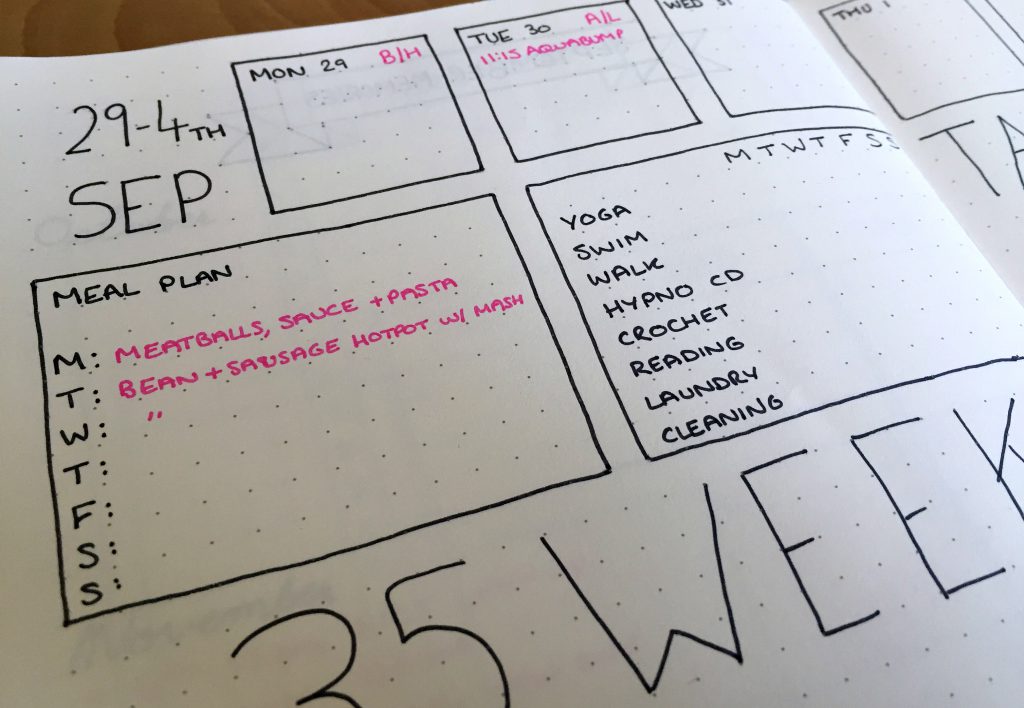 29-4TH
SEP
MON 29 B/H
TUE 30 A/L
11:15 AQUABUMP
WED 31
THU 1
MEAL PLAN
M: MEATBALLS, SAUCE + PASTA
T: BEAN + SAUSAGE HOTPOT W/ MASH
W: "
T:
F:
S:
S:
M T W T F S S
YOGA
SWIM
WALK
HYPNO CD
CROCHET
READING
LAUNDRY
CLEANING
TA
35 WEEK